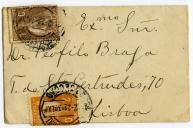 Ex.mo Snr.
Dr. Teófilo Braga
T. de Sta Gertrudes, 70
Lisboa